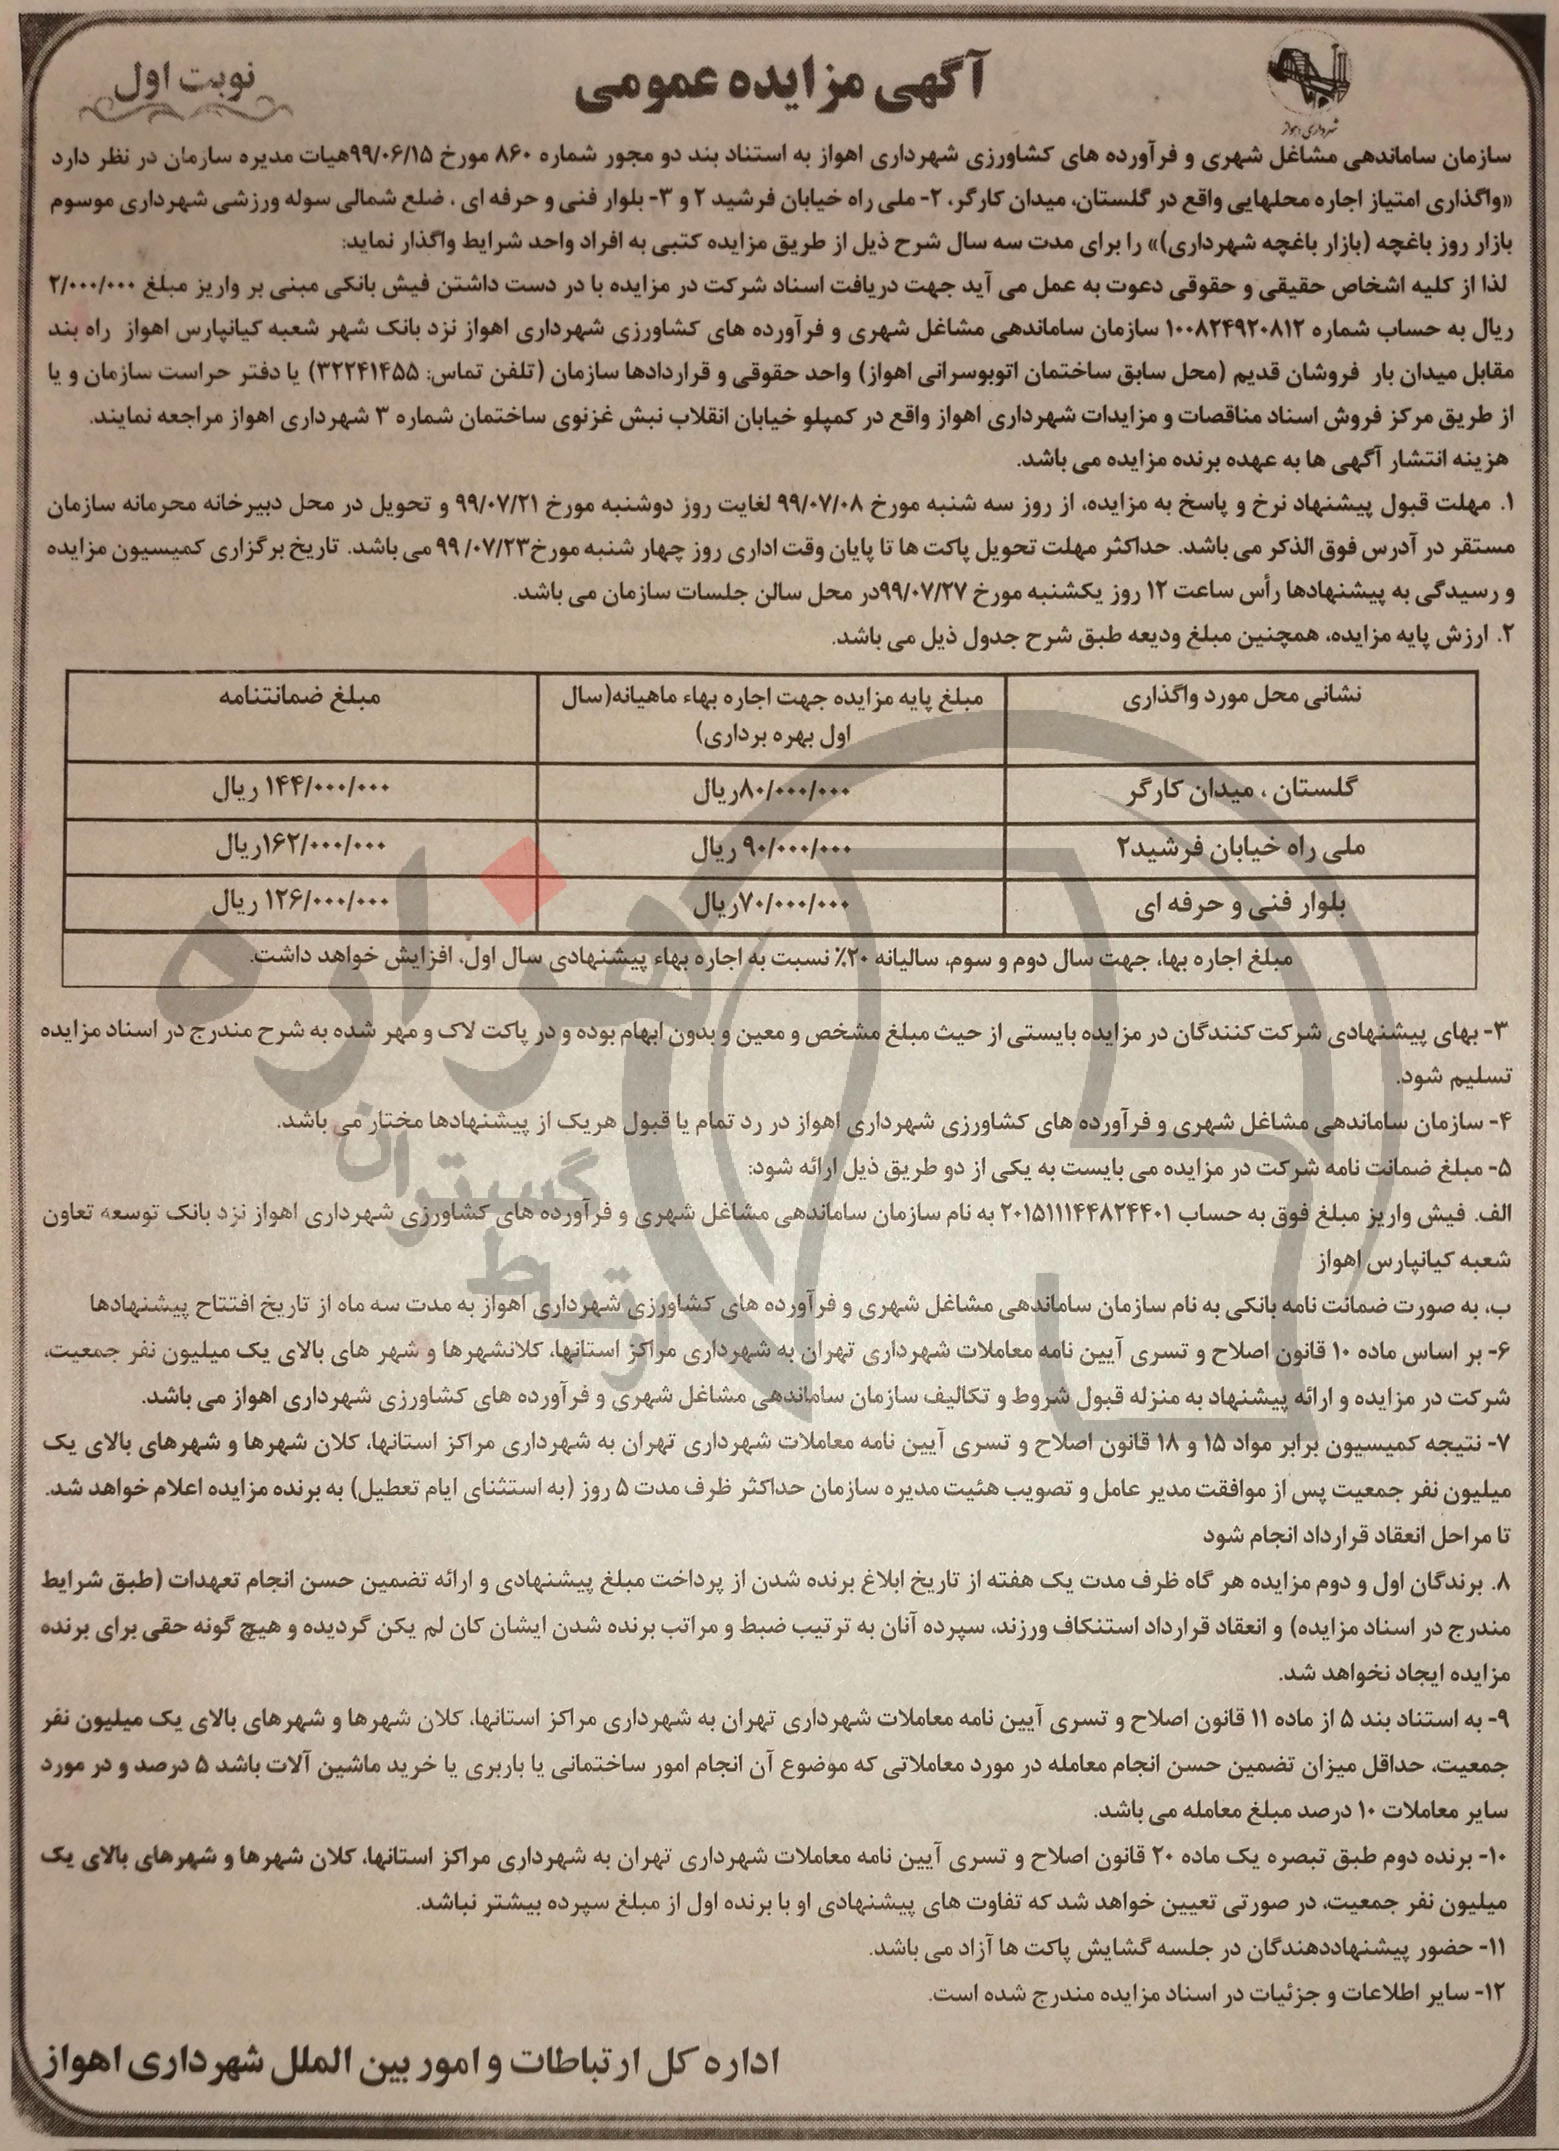 آگهی مزایده عمومی
نوبت اول
شهرداری اهواز
سازمان ساماندهی مشاغل شهری و فرآورده های کشاورزی شهرداری اهواز به استناد بند دو مجور شماره ۸۶۰ مورخ ۹۹/۰۶/۱۵هیات مدیره سازمان در نظر دارد
«واگذاری امتیاز اجاره محلهایی واقع در گلستان، میدان کارگر، ۲- ملی راه خیابان فرشید ۲ و ۳- بلوار فنی و حرفه ای ، ضلع شمالی سوله ورزشی شهرداری موسوم
بازار روز باغچه (بازار باغچه شهرداری)» را برای مدت سه سال شرح ذیل از طریق مزایده کتبی به افراد واحد شرایط واگذار نماید:
لذا از کلیه اشخاص حقیقی و حقوقی دعوت به عمل می آید جهت دریافت اسناد شرکت در مزایده با در دست داشتن فیش بانکی مبنی بر واریز مبلغ ۲/۰۰۰/۰۰۰
ریال به حساب شماره ۱۰۰۸۲۴۹۲۰۸۱۲ سازمان ساماندهی مشاغل شهری و فرآورده های کشاورزی شهرداری اهواز نزد بانک شهر شعبه کیانپارس اهواز راه بند
مقابل میدان بار فروشان قدیم (محل سابق ساختمان اتوبوسرانی اهواز) واحد حقوقی و قراردادها سازمان (تلفن تماس: ۳۲۲۴۱۴۵۵) یا دفتر حراست سازمان و یا
از طریق مرکز فروش اسناد مناقصات و مزایدات شهرداری اهواز واقع در کمپلو خیابان انقلاب نبش غزنوی ساختمان شماره ۳ شهرداری اهواز مراجعه نمایند.
هزینه انتشار آگهی ها به عهده برنده مزایده می باشد.
۱. مهلت قبول پیشنهاد نرخ و پاسخ به مزایده، از روز سه شنبه مورخ ۹۹/۰۷/۰۸ لغایت روز دوشنبه مورخ ۹۹/۰۷/۲۱ و تحویل در محل دبیرخانه محرمانه سازمان
مستقر در آدرس فوق الذکر می باشد. حداکثر مهلت تحویل پاکت ها تا پایان وقت اداری روز چهار شنبه مورخ۹۹/۰۷/۲۳ می باشد. تاریخ برگزاری کمیسیون مزایده
و رسیدگی به پیشنهادها رأس ساعت ۱۲ روز یکشنبه مورخ ۹۹/۰۷/۲۷در محل سالن جلسات سازمان می باشد.
۲. ارزش پایه مزایده، همچنین مبلغ ودیعه طبق شرح جدول ذیل می باشد.
نشانی محل مورد واگذاری	مبلغ پایه مزایده جهت اجاره بهاء ماهیانه(سال اول بهره برداری)	مبلغ ضمانتنامه
گلستان ، میدان کارگر	۸۰/۰۰۰/۰۰۰ریال	۱۴۴/۰۰۰/۰۰۰ ریال
ملی راه خیابان فرشید۲	۹۰/۰۰۰/۰۰۰ ریال	۱۶۲/۰۰۰/۰۰۰ریال
بلوار فنی و حرفه ای	۷۰/۰۰۰/۰۰۰ریال	۱۲۶/۰۰۰/۰۰۰ ریال
مبلغ اجاره بها، جهت سال دوم و سوم، سالیانه ۲۰٪ نسبت به اجاره بهاء پیشنهادی سال اول، افزایش خواهد داشت.
۳- بهای پیشنهادی شرکت کنندگان در مزایده بایستی از حیث مبلغ مشخص و معین و بدون ابهام بوده و در پاکت لاک و مهر شده به شرح مندرج در اسناد مزایده
تسلیم شود.
۴- سازمان ساماندهی مشاغل شهری و فرآورده های کشاورزی شهرداری اهواز در رد تمام یا قبول هریک از پیشنهادها مختار می باشد.
۵- مبلغ ضمانت نامه شرکت در مزایده می بایست به یکی از دو طریق ذیل ارائه شود:
الف. فیش واریز مبلغ فوق به حساب ۲۰۱۵۱۱۱۴۴۸۲۴۴۰۱ به نام سازمان ساماندهی مشاغل شهری و فرآورده های کشاورزی شهرداری اهواز نزد بانک توسعه تعاون
شعبه کیانپارس اهواز
ب، به صورت ضمانت نامه بانکی به نام سازمان ساماندهی مشاغل شهری و فرآورده های کشاورزی شهرداری اهواز به مدت سه ماه از تاریخ افتتاح پیشنهادها
۶- بر اساس ماده ۱۰ قانون اصلاح و تسری آیین نامه معاملات شهرداری تهران به شهرداری مراکز استانها، کلانشهرها و شهر های بالای یک میلیون نفر جمعیت،
شرکت در مزایده و ارائه پیشنهاد به منزله قبول شروط و تکالیف سازمان ساماندهی مشاغل شهری و فرآورده های کشاورزی شهرداری اهواز می باشد.
۷- نتیجه کمیسیون برابر مواد ۱۵ و ۱۸ قانون اصلاح و تسری آیین نامه معاملات شهرداری تهران به شهرداری مراکز استانها، کلان شهرها و شهرهای بالای یک
میلیون نفر جمعیت پس از موافقت مدیر عامل و تصویب هئیت مدیره سازمان حداکثر ظرف مدت ۵ روز (به استثنای ایام تعطیل) به برنده مزایده اعلام خواهد شد.
تا مراحل انعقاد قرارداد انجام شود
۸. برندگان اول و دوم مزایده هر گاه ظرف مدت یک هفته از تاریخ ابلاغ برنده شدن از پرداخت مبلغ پیشنهادی و ارائه تضمین حسن انجام تعهدات (طبق شرایط
مندرج در اسناد مزایده) و انعقاد قرارداد استنکاف ورزند، سپرده آنان به ترتیب ضبط و مراتب برنده شدن ایشان کان لم یکن گردیده و هیچ گونه حقی برای برنده
مزایده ایجاد نخواهد شد.
۹- به استناد بند ۵ از ماده ۱۱ قانون اصلاح و تسری آیین نامه معاملات شهرداری تهران به شهرداری مراکز استانها، کلان شهرها و شهرهای بالای یک میلیون نفر
جمعیت، حداقل میزان تضمین حسن انجام معامله در مورد معاملاتی که موضوع آن انجام امور ساختمانی یا باربری یا خرید ماشین آلات باشد ۵ درصد و در مورد
سایر معاملات ۱۰ درصد مبلغ معامله می باشد.
۱۰- برنده دوم طبق تبصره یک ماده ۲۰ قانون اصلاح و تسری آیین نامه معاملات شهرداری تهران به شهرداری مراکز استانها، کلان شهرها و شهرهای بالای یک
میلیون نفر جمعیت، در صورتی تعیین خواهد شد که تفاوت های پیشنهادی او با برنده اول از مبلغ سپرده بیشتر نباشد.
۱۱- حضور پیشنهاددهندگان در جلسه گشایش پاکت ها آزاد می باشد.
۱۲- سایر اطلاعات و جزئیات در اسناد مزایده مندرج شده است.
اداره کل ارتباطات و امور بین الملل شهرداری اهواز
هزاره
گستران
ارتباط